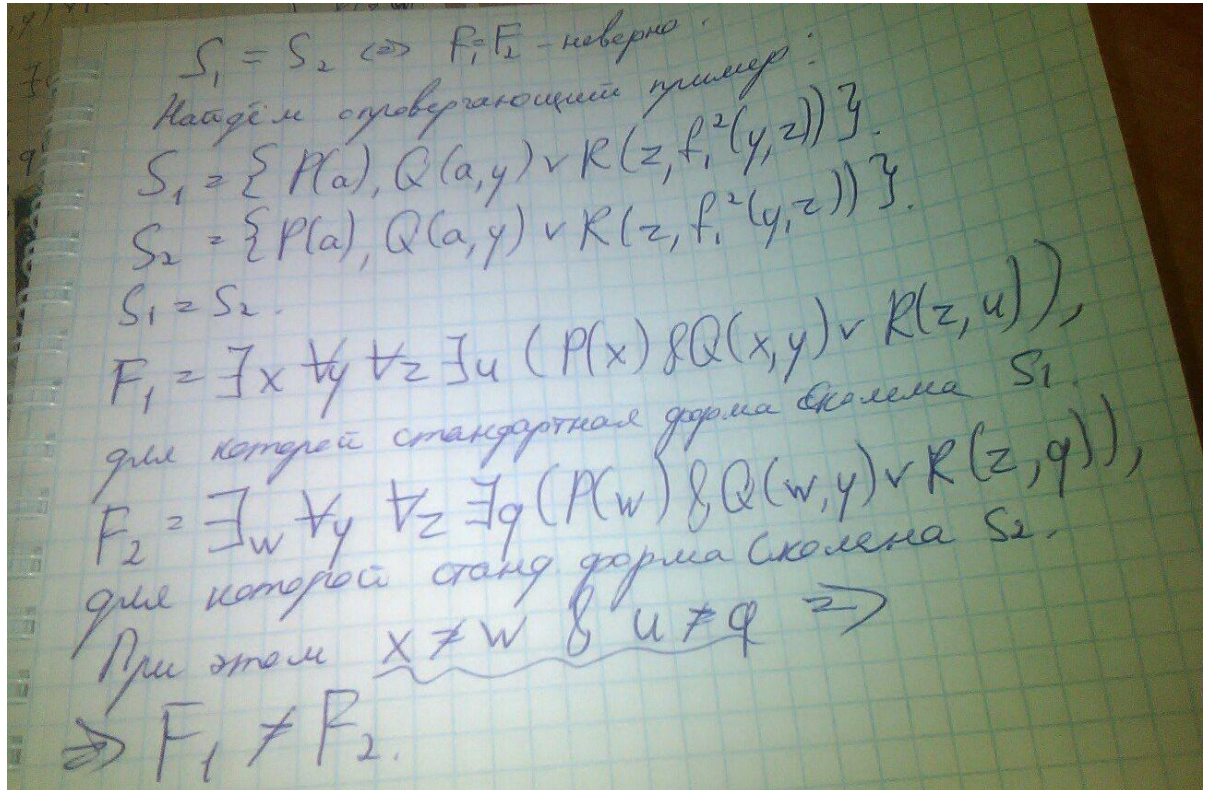 S₁ = S₂ ⇔ F₁=F₂ - неверно.
Найдём опровергающий пример:
S₁ = { P(a), Q(a,y) ∨ R(z, f₁²(y,z)) }.
S₂ = { P(a), Q(a,y) ∨ R(z, f₁²(y,z)) }.
S₁ = S₂.
F₁ = ∃x ∀y ∀z ∃u (P(x) & Q(x,y) ∨ R(z,u)),
для которой стандартная форма Сколема S₁.
F₂ = ∃w ∀y ∀z ∃q (P(w) & Q(w,y) ∨ R(z,q)),
для которой станд. форма Сколена S₂.
При этом x ≠ w & u ≠ q ⇒
⇒ F₁ ≠ F₂.